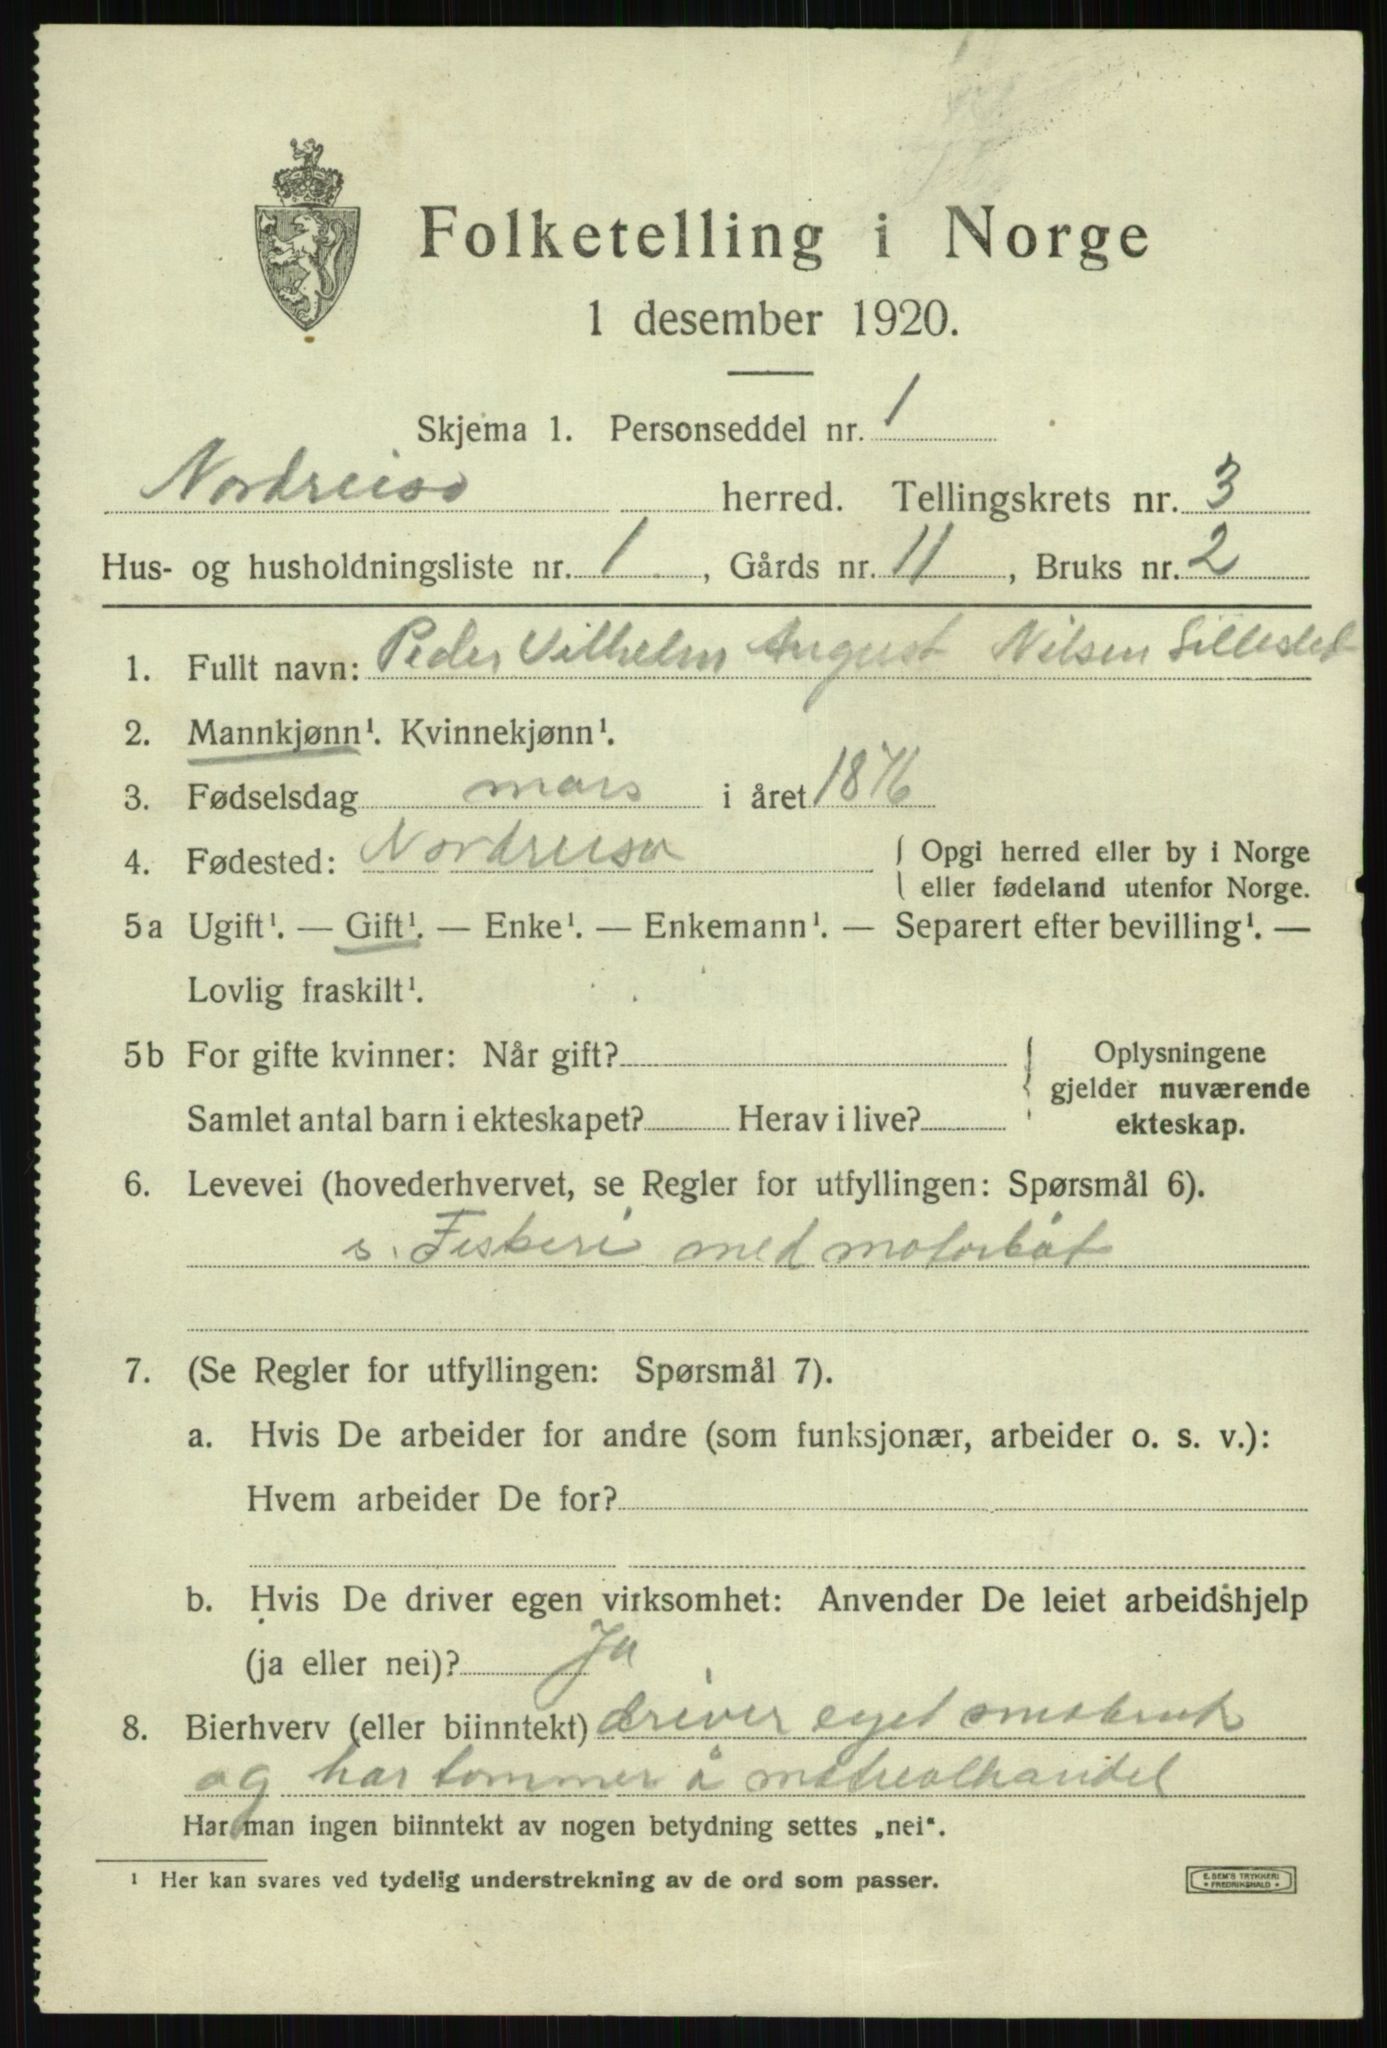 Folketelling i Norge
1 desember 1920.
Skjema 1. Personseddel nr. 1
Nordreisa herred. Tellingskrets nr. 3
Hus- og husholdningsliste nr. 1, Gårds nr. 11, Bruks nr. 2
1. Fullt navn: Peder Vilhelm August Nilsen
2. Mannkjønn¹. Kvinnekjønn¹.
3. Fødselsdag mars i året 1876
4. Fødested: Nordreisa { Opgi herred eller by i Norge
eller fødeland utenfor Norge.
5a Ugift¹. — Gift¹. — Enke¹. — Enkemann¹. — Separert efter bevilling¹. —
Lovlig fraskilt¹.
5b For gifte kvinner: Når gift? { Oplysningene
gjelder nuværende
Samlet antal barn i ekteskapet? Herav i live? ekteskap.
6. Levevei (hovederhvervet, se Regler for utfyllingen: Spørsmål 6).
s. Fiskeri med motorbåt
7. (Se Regler for utfyllingen: Spørsmål 7).
a. Hvis De arbeider for andre (som funksjonær, arbeider o. s. v.):
Hvem arbeider De for?
b. Hvis De driver egen virksomhet: Anvender De leiet arbeidshjelp
(ja eller nei)? Ja
8. Bierhverv (eller biinntekt) driver eget småbruk
og har tømmer å matrealhandel
Har man ingen biinntekt av nogen betydning settes „nei“.
¹ Her kan svares ved tydelig understrekning av de ord som passer.
E. SEM'S TRYKKERI
* FREDRIKSHALD *